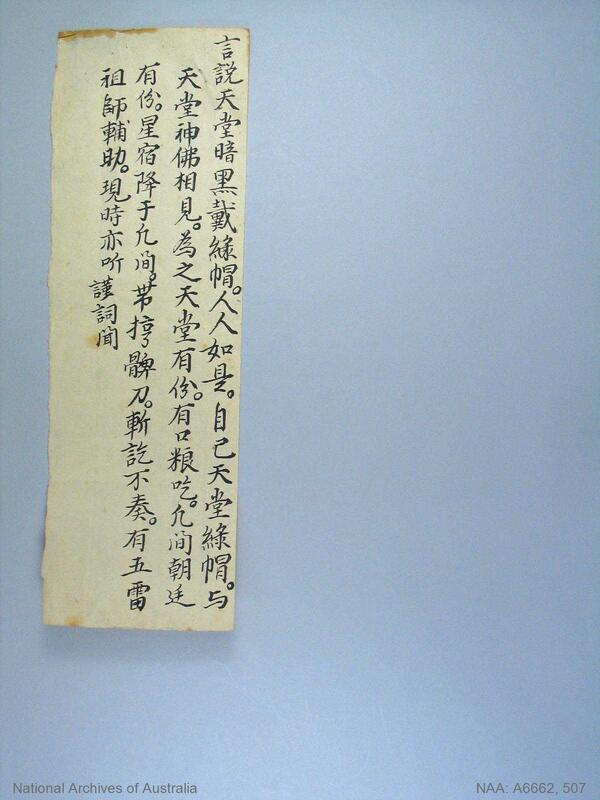 言説天堂暗黑戴綠帽。人人如是。自己天堂綠帽。与
天堂神佛相見。為之天堂有份。有口粮吃。凢间朝廷
有份。星宿降于凢间。带擋髀刀。斬訖不奏。有五雷
祖師輔助。現時亦听 謹詞聞
National Archives of Australia
NAA: A6662, 507